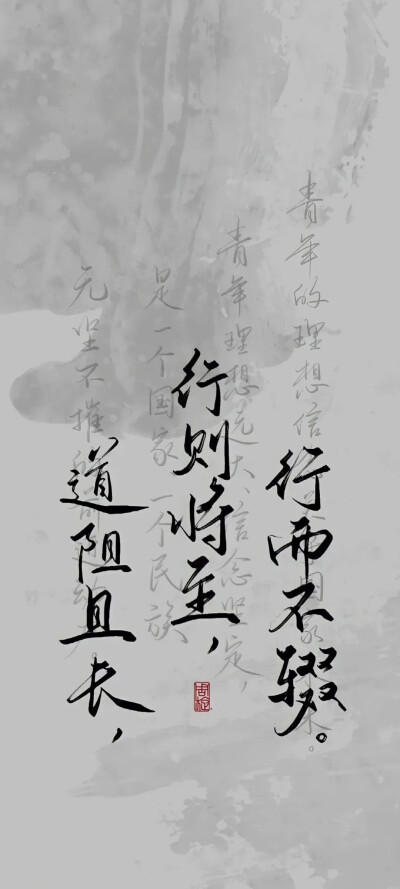 道阻且长，
行则将至，
行而不辍。
青年的理想信国家未来。
青年理想远大、信念坚定，
是一个国家、一个民族
无坚不摧的前